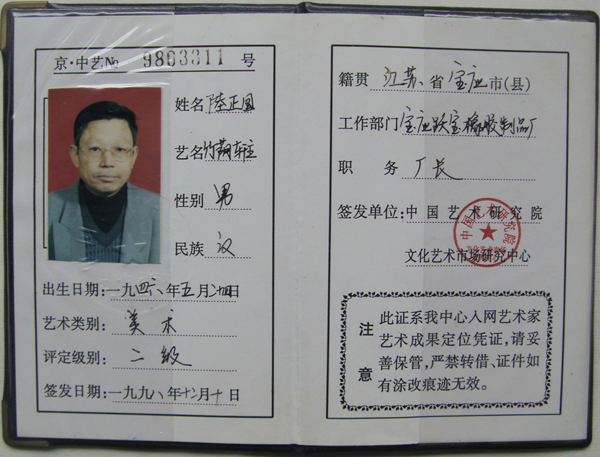 京·中艺№ 9803311 号
姓名 陆正国
艺名
性别 男
民族 汉
出生日期:一九四六年五月廿四日
艺术类别: 美术
评定级别: 二级
签发日期:一九九八年十二月十日
籍贯 江苏省宝应市(县)
工作部门 宝应跃宝橡胶制品厂
职务 厂长
签发单位:中国艺术研究院
文化艺术市场研究中心
注意
此证系我中心入网艺术家
艺术成果定位凭证,请妥
善保管,严禁转借、证件如
有涂改痕迹无效。